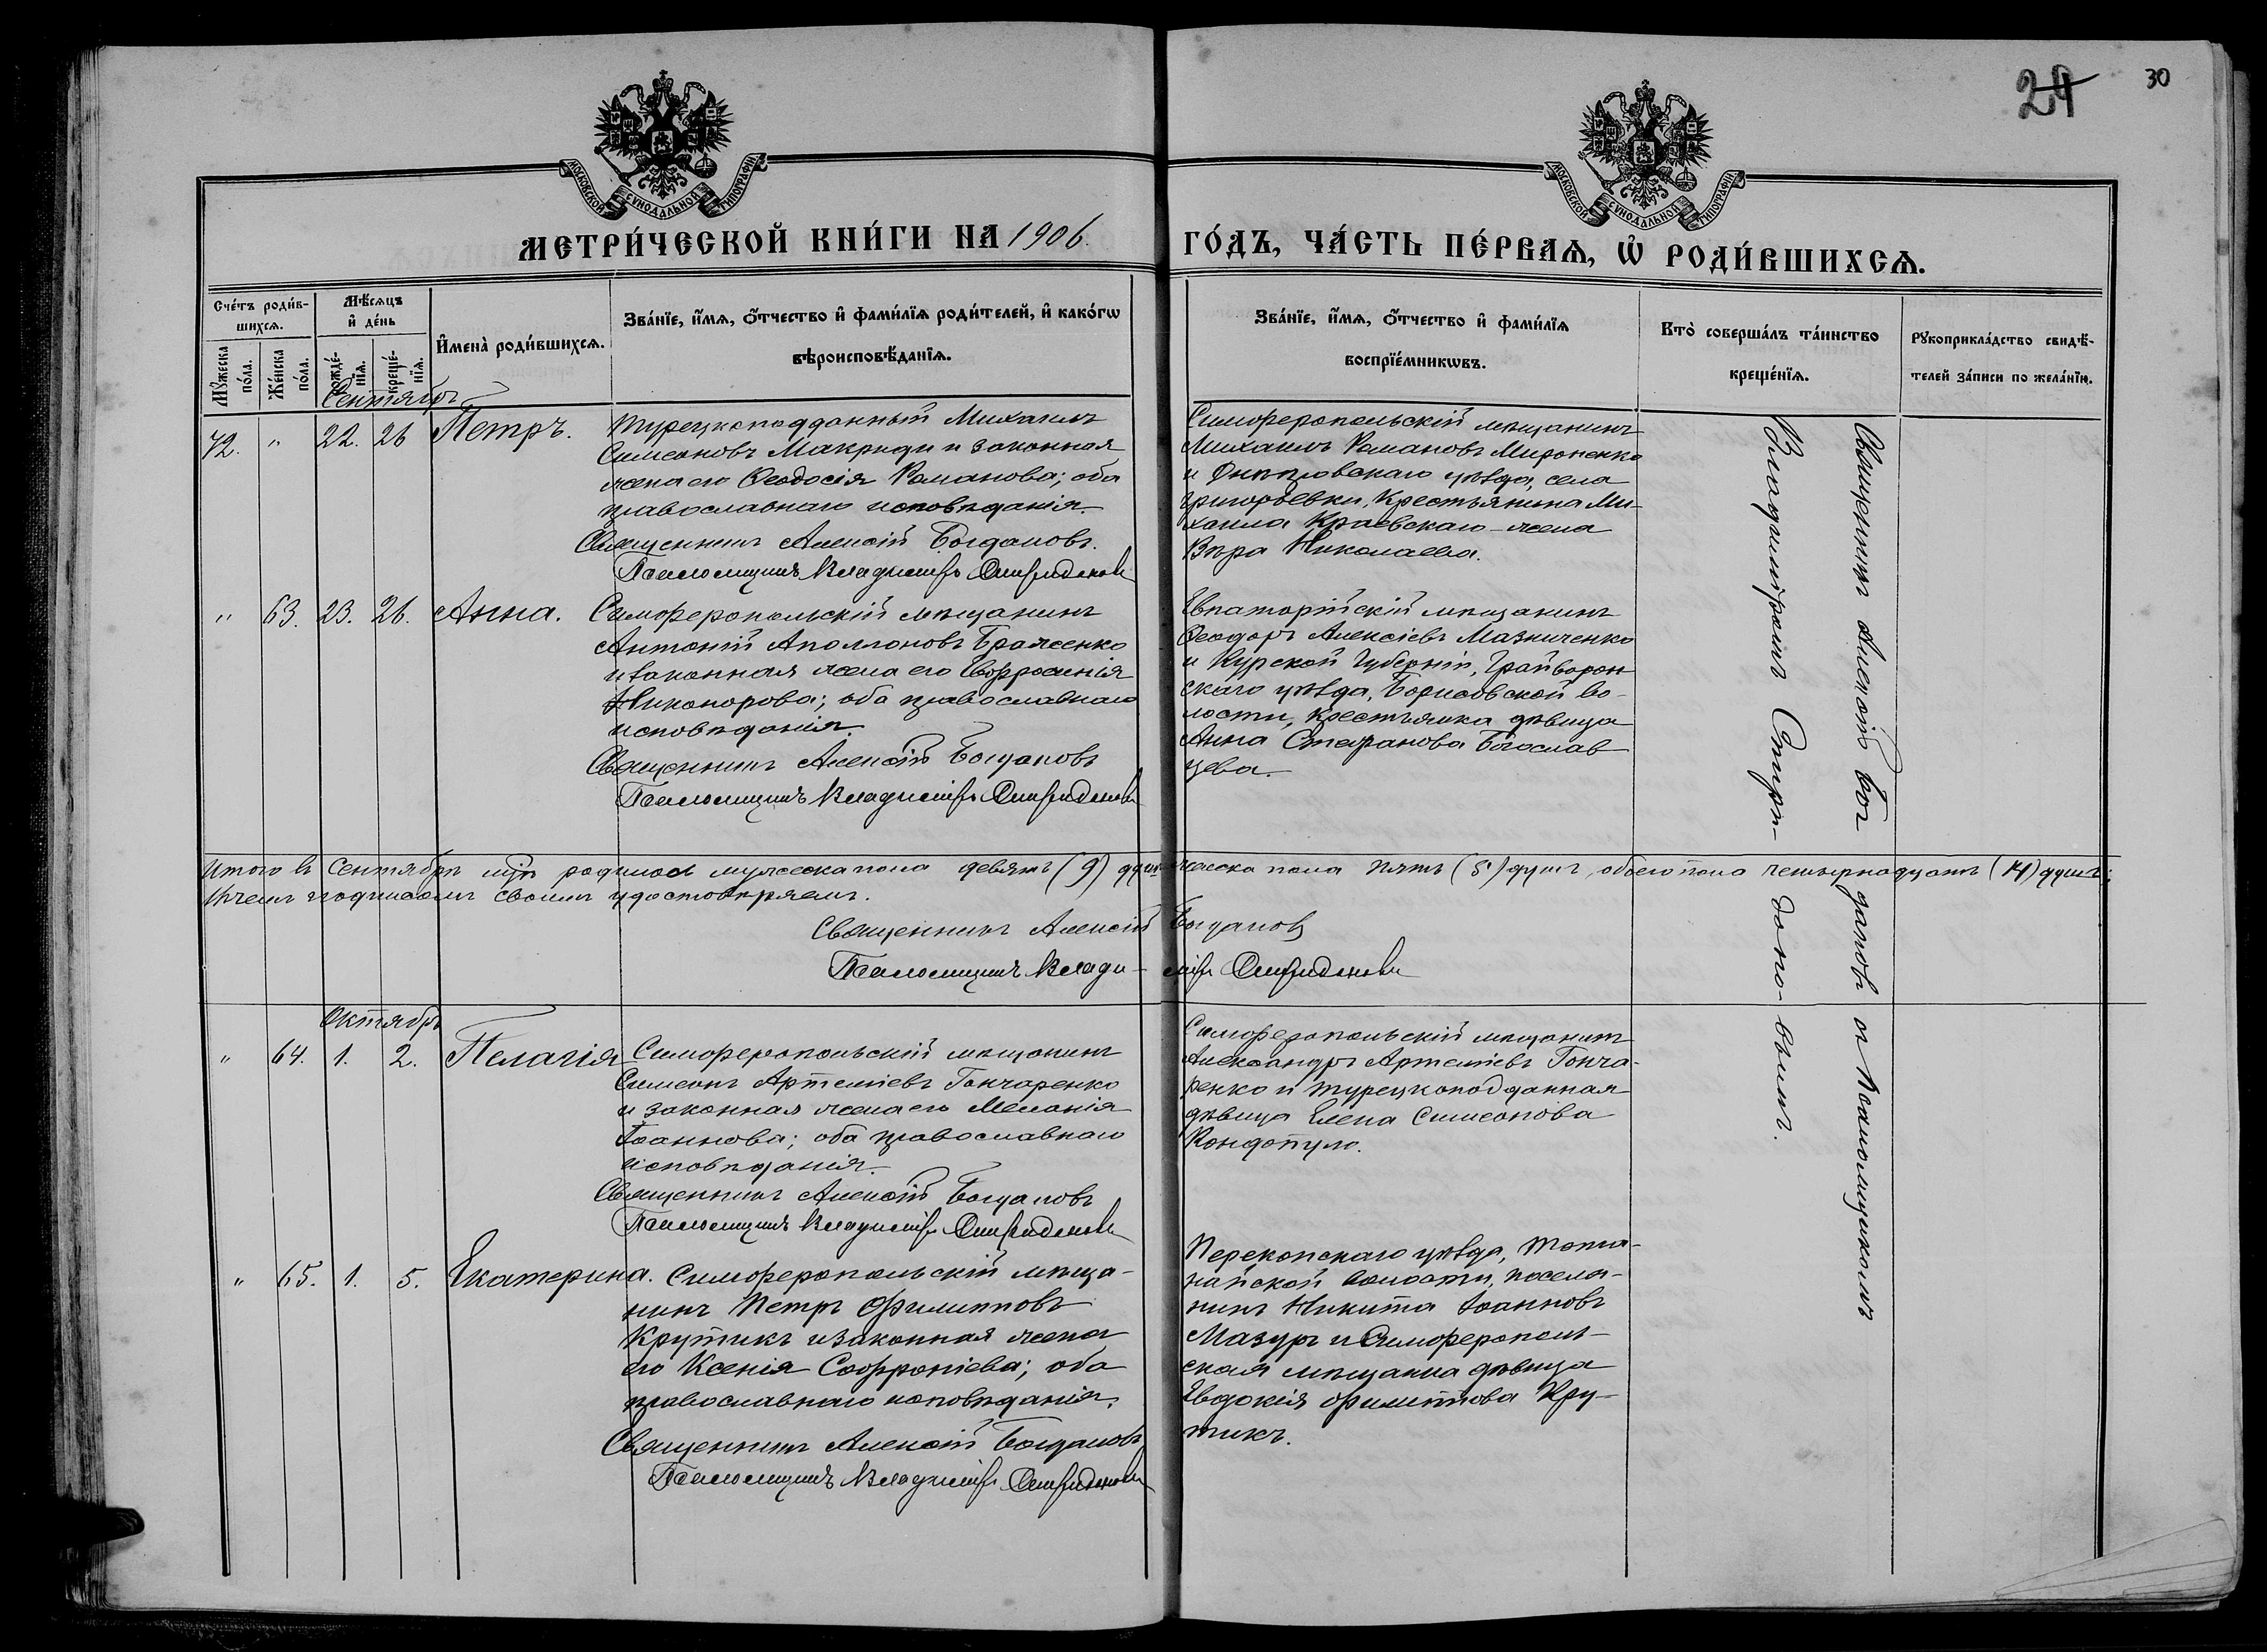 24 30
МОСКОВСКОЙ СѴНОДАЛЬНОЙ ТИПОГРАФІИ
МОСКОВСКОЙ СѴНОДАЛЬНОЙ ТИПОГРАФІИ
МЕТРИ́ЧЕСКОЙ КНИ́ГИ НА 1906.
ГО́ДЪ, ЧА́СТЬ ПЕ́РВАѦ, Ѡ҆ РОДИ́ВШИХСѦ.
Сче́тъ роди́в-
шихсѧ.
Мꙋ́жеска по́ла.
Же́нска по́ла.
Мѣ́сѧцъ
и҆ де́нь
рожде́-
нїѧ.
креще́-
нїѧ.
И҆мена̀ роди́вшихсѧ.
Зва́нїе, и҆́мѧ, ѻ҆́тчество и҆ фами́лїѧ роди́телей, и҆ како́гѡ
вѣроисповѣ́данїѧ.
Зва́нїе, и҆́мѧ, ѻ҆́тчество и҆ фами́лїѧ
воспрїе́мникѡвъ.
Кто̀ соверша́лъ та́инство
креще́нїѧ.
Рꙋкоприкла́дство свидѣ́-
телей за́писи по жела́нїю.
Сентябрь
72. " 22. 26 Петръ.
Турецкоподданный Михаилъ
Симеоновъ Макриди и законная
жена его Ѳеодосія Романова; оба
православнаго исповѣданія.
Священникъ Алексій Богдановъ.
Псаломщикъ Владиміръ Спиридоновъ
Симферопольскій мѣщанинъ
Михаилъ Романовъ Мироненко
и Днѣпровскаго уѣзда, села
Григорьевки, Крестьянина Ми-
хаила Краевскаго жена
Вѣра Николаева.
" 63. 23. 26. Анна.
Симферопольскій мѣщанинъ
Антоній Аполлоновъ Браженко
и законная жена его Евфросинія
Никонорова; оба православнаго
исповѣданія.
Священникъ Алексій Богдановъ
Псаломщикъ Владиміръ Спиридоновъ
Евпаторійскій мѣщанинъ
Ѳеодоръ Алексіевъ Мазниченко
и Курской Губерніи, Грайворон
скаго уѣзда, Борисовской во-
лости, крестьянка дѣвица
Анна Стефанова Богослав
цева.
Итого въ Сентябрѣ мцѣ родилось мужеска пола девять (9) душъ женска пола пять (5) душъ, обоего пола четырнадцать (14) душъ;
Въ чемъ подписомъ своимъ удостовѣряемъ.
Священникъ Алексій Богдановъ
Псаломщикъ Влади-міръ Спиридоновъ
Октябрь
" 64. 1. 2. Пелагія
Симферопольскій мѣщанинъ
Симеонъ Артеміевъ Гончаренко
и законная жена его Меланія
Іоаннова; оба православнаго
исповѣданія.
Священникъ Алексій Богдановъ
Псаломщикъ Владиміръ Спиридоновъ
Симферопольскій мѣщанинъ
Александръ Артеміевъ Гонча-
ренко и турецкоподданная
дѣвица Елена Симеонова
Кондопуло.
" 65. 1. 5. Екатерина.
Симферопольскій мѣща-
нинъ Петръ Филипповъ
Крутикъ и законная жена
его Ксенія Софроніева; оба
православнаго исповѣданія.
Священникъ Алексій Богдановъ
Псаломщикъ Владиміръ Спиридоновъ
Перекопскаго уѣзда,
волости, поселя-
нинъ Никита Іоанновъ
Мазуръ и Симферополь-
ская мѣщанка дѣвица
Евдокія Филиппова Кру-
тикъ.
Священникъ Алексій Богдановъ съ Псаломщикомъ
Владиміромъ Спири-доно-вымъ.